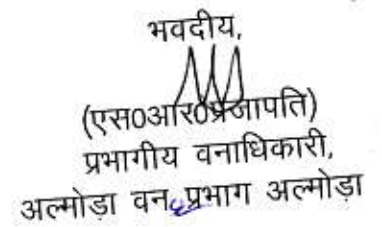 भवदीय,
(एस0आर0प्रजापति)
प्रभागीय वनाधिकारी,
अल्मोड़ा वन प्रभाग अल्मोड़ा